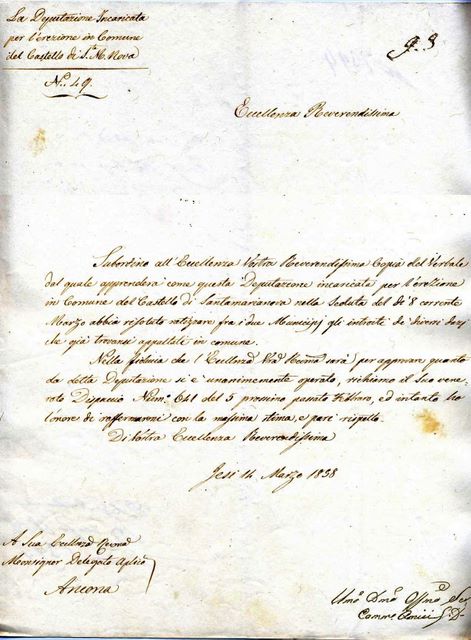 La Deputazione Incaricata
per l'erezione in Comune
del Castello di S.ª M. Nova
N.º 49.
Eccellenza Reverendissima
Subordino all'Eccellenza Vostra Reverendissima Copia del Verbale
dal quale apprenderà come questa Deputazione incaricata per l'erezione
in Comune del Castello di Santamarianova nella Seduta del dì 8 corrente
Marzo abbia risoluto ratizzare fra i due Municipj gli introiti de' diversi dazj
che già trovansi appaltati in comune.
Nella fiducia che l'Ecellenza V.ra sarà per approvare quanto
da detta Deputazione si è unanimemente operato, richiamo il Suo vene
rato Dispaccio Num.º 641 del 5 prossimo passato Febbraro, ed intanto ho
l'onore di raffermarmi con la massima stima, e pari rispetto.
Di Vostra Eccellenza Reverendissima
Jesi 14 Marzo 1838
A Sua Eccellza Rma
Monsignor Delegato Aplico
Ancona
Umo Dmo Ossmo Ser